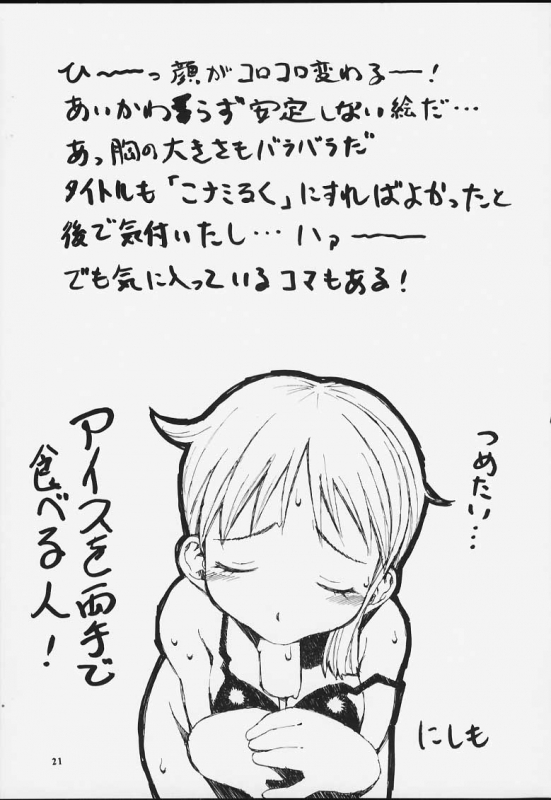 ひ〜〜っ顔がコロコロ変わるー!
あいかわらず安定しない絵だ…
あっ胸の大きさもバラバラだ
タイトルも「こナミるく」にすればよかったと
後で気付いたし…ハァ〜〜
でも気に入っているコマもある!
つめたい…
アイスを両手で
食べる人!
にしも
21